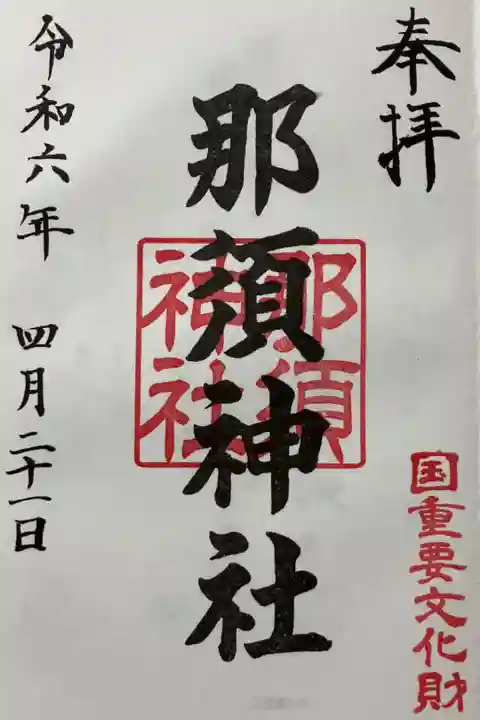 奉拝
国重要文化財
那須神社
那須
神社
令和六年 四月二十一日